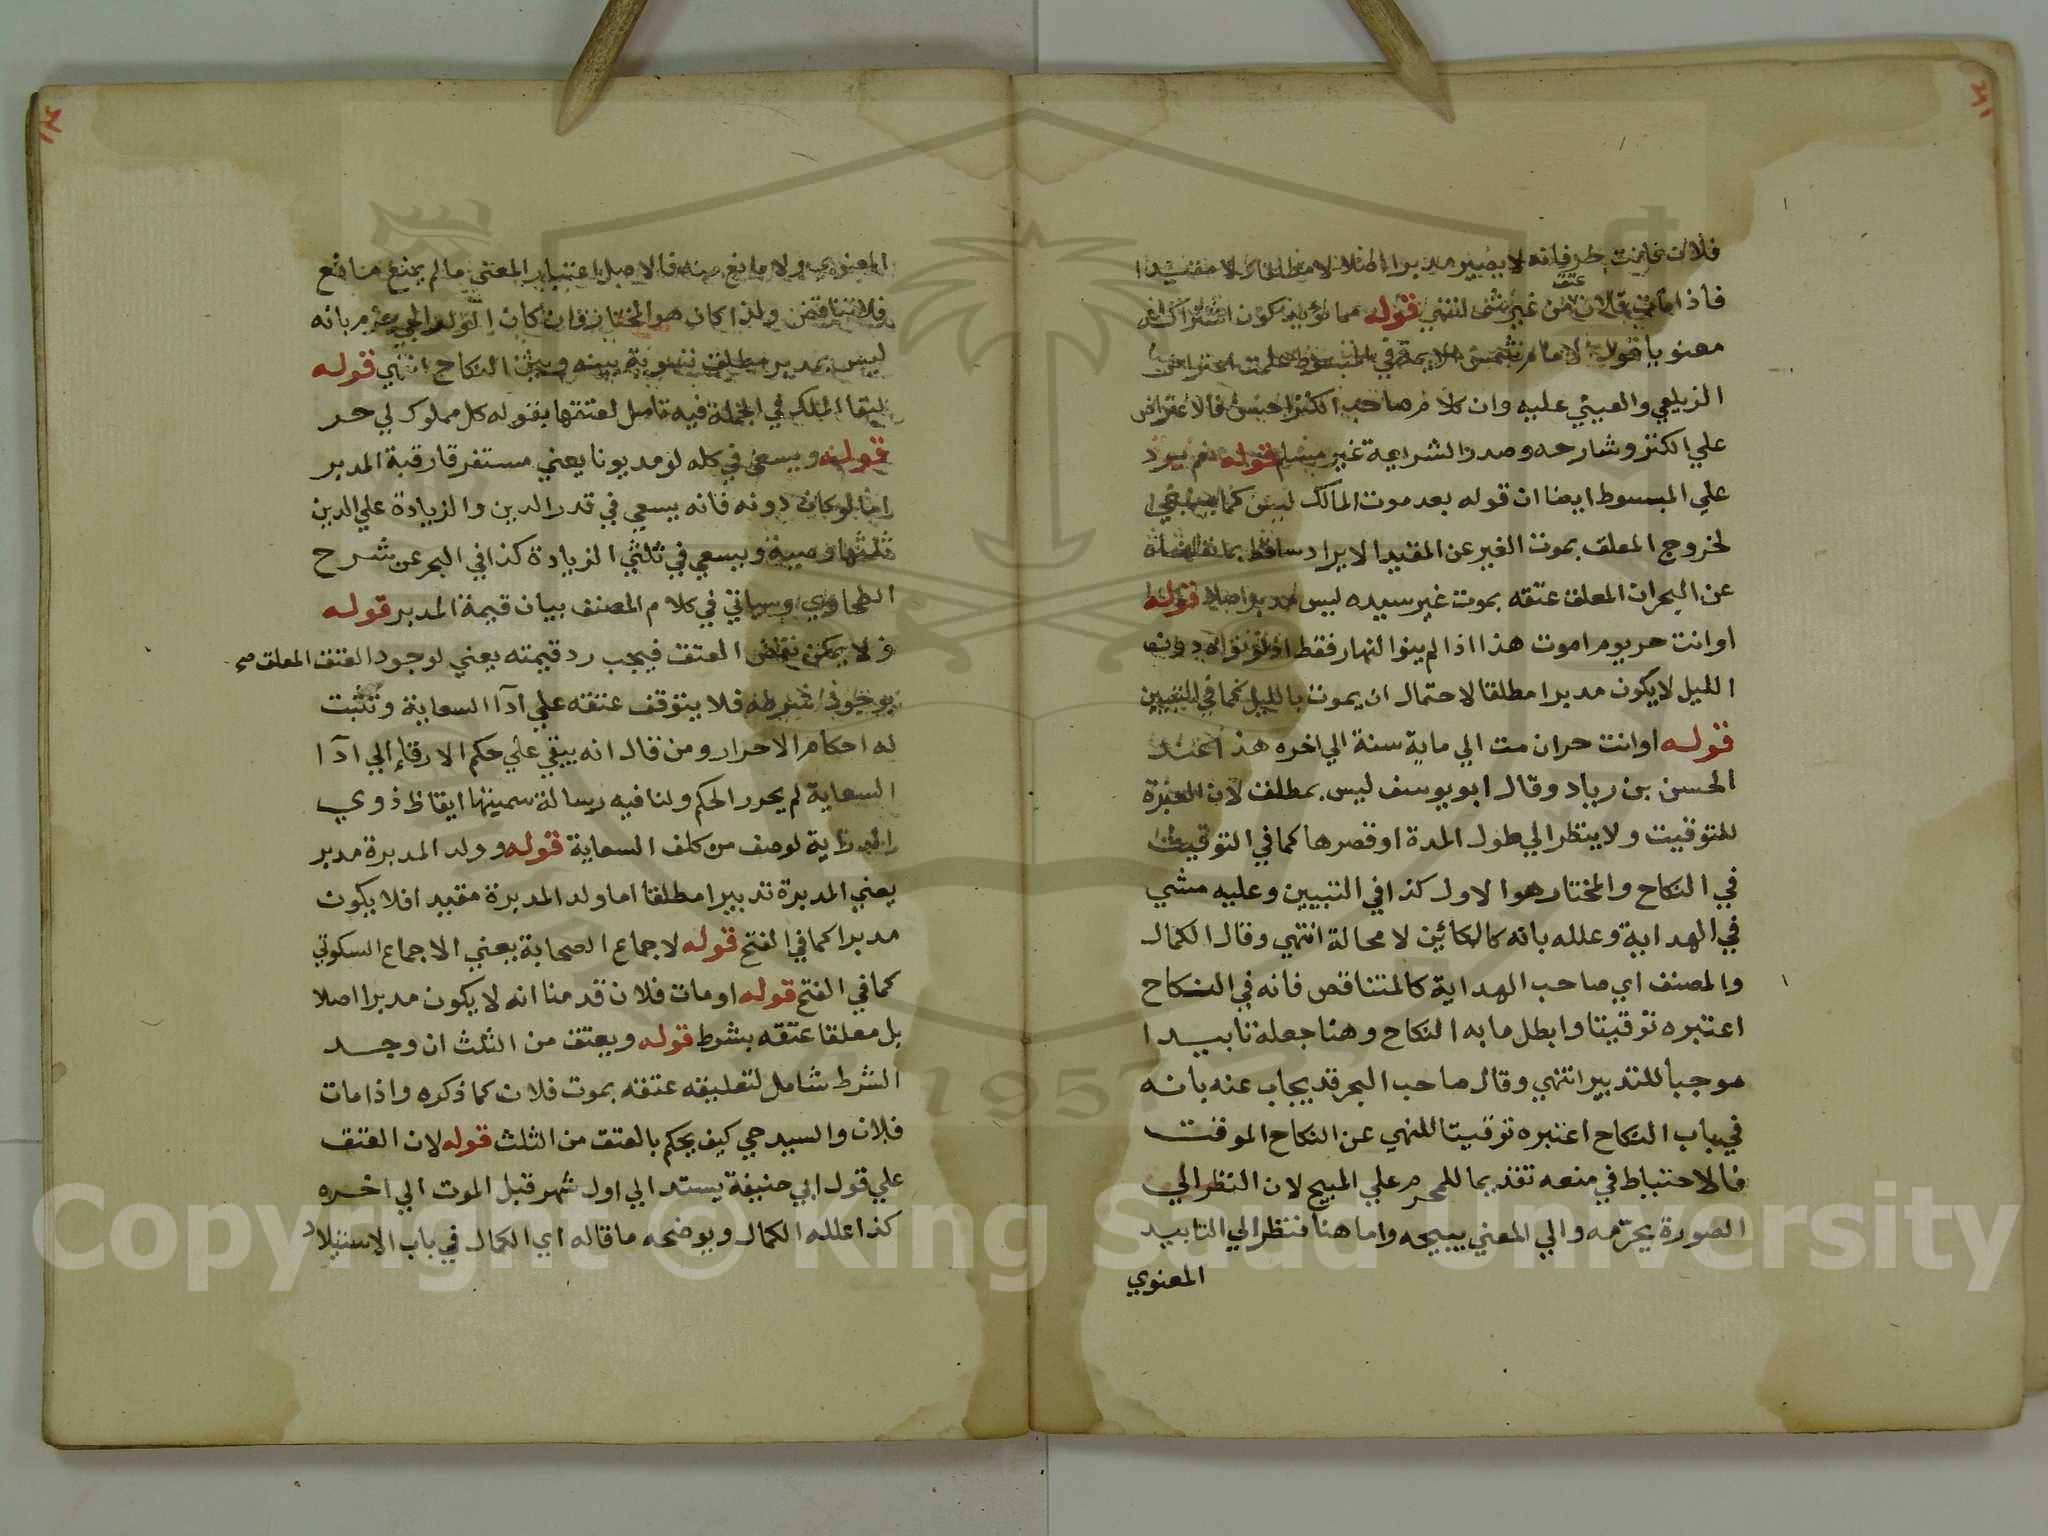 فلان فانت حر فانه لا يصير مدبرا اصلا لا مطلقا ولا مقيدا
فاذا مات فلان عتق من غير شي انتهي قوله مما يؤيد كون اشتراك
معنويا قول الامام شمس الايمة في المبسوط علمت اعتراض
الزيلعي والعيني عليه وان كلام صاحب الكنز احسن فالاعتراض
علي الكنز وشارحه وصدر الشريعة غير مسلم قوله نعم يرد
علي المبسوط ايضا ان قوله بعد موت المالك ليس كما ينبغي
لخروج المعلق بموت الغير عن المقيد الايراد ساقط بما نقلناه
عن البحر ان المعلق عتقه بموت غير سيده ليس مدبرا اصلا قوله
او انت حر يوم اموت هذا اذا لم ينو النهار فقط اذ لو نواه دون
الليل لا يكون مدبرا مطلقا لاحتمال ان يموت بالليل كما في التبيين
قوله او انت حر ان مت الي ماية سنة الي اخره هذا عند
الحسن بن زياد وقال ابو يوسف ليس بمطلق لان العبرة
للتوقيت ولا ينظر الي طول المدة او قصرها كما في التوقيت
في النكاح والمختار هو الاول كذا في التبيين وعليه مشي
في الهداية وعلله بانه كالكائن لا محالة انتهي وقال الكمال
والمصنف اي صاحب الهداية كالمتناقض فانه في النكاح
اعتبره توقيتا وابطل ما به النكاح وهنا جعله تابيدا
موجبا للتدبير انتهي وقال صاحب البحر قد يجاب عنه بانه
في باب النكاح اعتبره توقيتا للنهي عن النكاح الموقت
فالاحتياط في منعه تقديما للمحرم علي المبيح لان النظر الي
الصورة يحرمه والي المعني يبيحه واما هنا فنظر الي التابيد
المعنوي
المعنوي ولا مانع منه فالاصل اعتبار المعني ما لم يمنع مانع
فلا تناقض ولذا كان هو المختار وان كان الولوالجي جزم بانه
ليس بمدبر مطلق تسوية بينه وبين النكاح انتهي قوله
لبقا الملك في الجملة فيه تامل لعتقها بقوله كل مملوك لي حر
قوله ويسعي في كله لو مديونا يعني مستغرقا رقبة المدبر
اما لو كان دونه فانه يسعي في قدر الدين والزيادة علي الدين
ثلثها وصية ويسعي في ثلثي الزيادة كذا في البحر عن شرح
الطحاوي وسياتي في كلام المصنف بيان قيمة المدبر قوله
ولا يمكن نقض العتق فيجب رد قيمته يعني لوجود العتق المعلق صح
بوجود شرطه فلا يتوقف عتقه علي آدا السعاية وتثبت
له احكام الاحرار ومن قال انه يبقي علي حكم الارقاء الي آدا
السعاية لم يحرر الحكم ولنا فيه رسالة سميتها ايقاظ ذوي
الدراية لوصف من كلف السعاية قوله وولد المدبرة مدبر
يعني المدبرة تدبيرا مطلقا اما ولد المدبرة مقيدا فلا يكون
مدبرا كما في الفتح قوله لاجماع الصحابة يعني الاجماع السكوتي
كما في الفتح قوله او مات فلان قدمنا انه لا يكون مدبرا اصلا
بل معلقا عتقه بشرط قوله ويعتق من الثلث ان وجد
الشرط شامل لتعليقه عتقه بموت فلان كما ذكره واذا مات
فلان والسيد حي كيف يحكم بالعتق من الثلث قوله لان العتق
علي قول ابي حنيفة يستند الي اول شهر قبل الموت الي اخره
كذا علله الكمال ويوضحه ما قاله اي الكمال في باب الاستيلاد
Copyright © King Saud University
1957